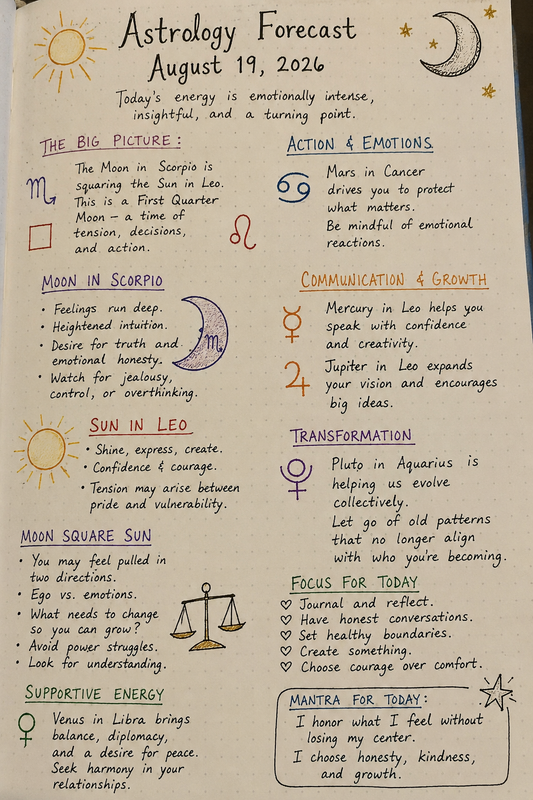 Astrology Forecast
August 19, 2026
Today's energy is emotionally intense,
insightful, and a turning point.
THE BIG PICTURE:
The Moon in Scorpio is
squaring the Sun in Leo.
This is a First Quarter
Moon – a time of
tension, decisions,
and action.
MOON IN SCORPIO
• Feelings run deep.
• Heightened intuition.
• Desire for truth and
emotional honesty.
• Watch for jealousy,
control, or overthinking.
SUN IN LEO
• Shine, express, create.
• Confidence & courage.
• Tension may arise between
pride and vulnerability.
MOON SQUARE SUN
• You may feel pulled in
two directions.
• Ego vs. emotions.
• What needs to change
so you can grow?
• Avoid power struggles.
• Look for understanding.
SUPPORTIVE ENERGY
Venus in Libra brings
balance, diplomacy,
and a desire for peace.
Seek harmony in your
relationships.
ACTION & EMOTIONS
Mars in Cancer
drives you to protect
what matters.
Be mindful of emotional
reactions.
COMMUNICATION & GROWTH
Mercury in Leo helps you
speak with confidence
and creativity.
Jupiter in Leo expands
your vision and encourages
big ideas.
TRANSFORMATION
Pluto in Aquarius is
helping us evolve
collectively.
Let go of old patterns
that no longer align
with who you're becoming.
FOCUS FOR TODAY
♡ Journal and reflect.
♡ Have honest conversations.
♡ Set healthy boundaries.
♡ Create something.
♡ Choose courage over comfort.
MANTRA FOR TODAY:
I honor what I feel without
losing my center.
I choose honesty, kindness,
and growth.